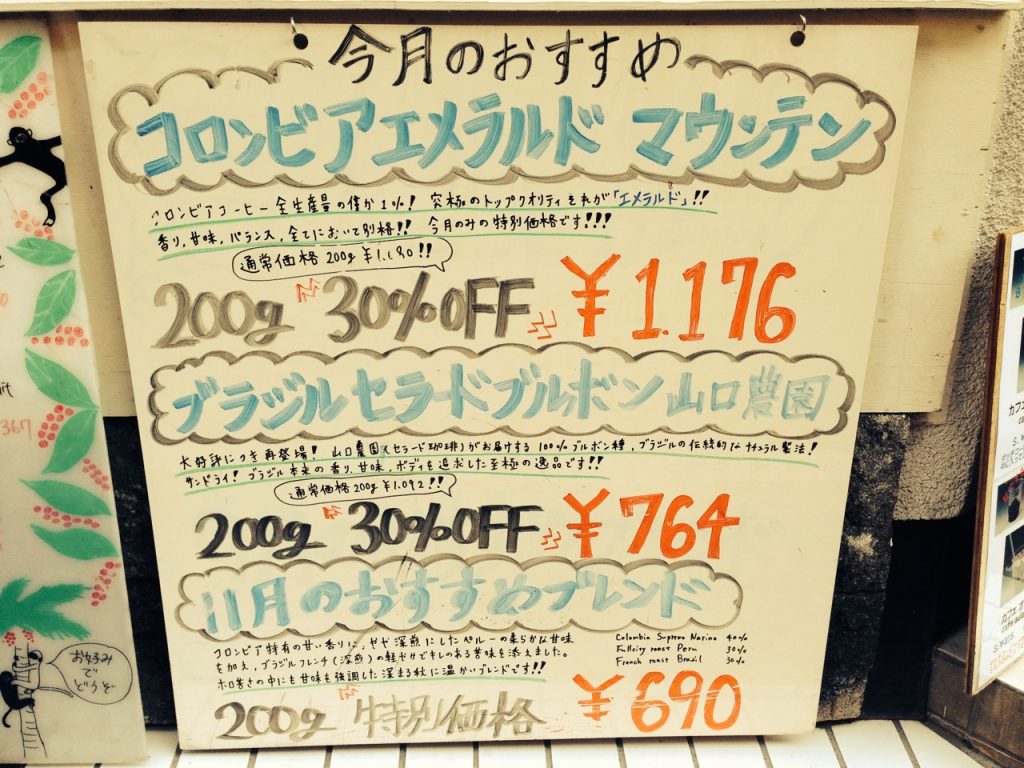 今月のおすすめ
コロンビアエメラルド マウンテン
コロンビアコーヒー全生産量の僅か1%! 究極のトップクオリティ それが「エメラルド」!!
香り,甘味,バランス,全てにおいて別格!! 今月のみの特別価格です!!!
通常価格 200g ¥1.680!!
200g 30%OFF ¥1.176
ブラジル セラードブルボン 山口農園
大好評につき再登場! 山口農園(セラード珈琲)がお届けする 100%ブルボン種,ブラジルの伝統的なナチュラル製法!
サンドライ! ブラジル本来の香り,甘味,ボディを追求した至極の逸品です!!
通常価格 200g ¥1.092!!
200g 30%OFF ¥764
11月のおすすめブレンド
コロンビア特有の甘い香りに,やや深煎にしたペルーの柔らかな甘味
を加え,ブラジルフレンチ(深煎)の軽やかでキレのある苦味を添えました。
ホロ苦さの中にも甘味を強調した深まる秋に温かいブレンドです!!
Colombia Supremo Narino 40%
Fullcity roast Peru 30%
French roast Brazil 30%
200g 特別価格 ¥690
367
お好み
で
どうぞ